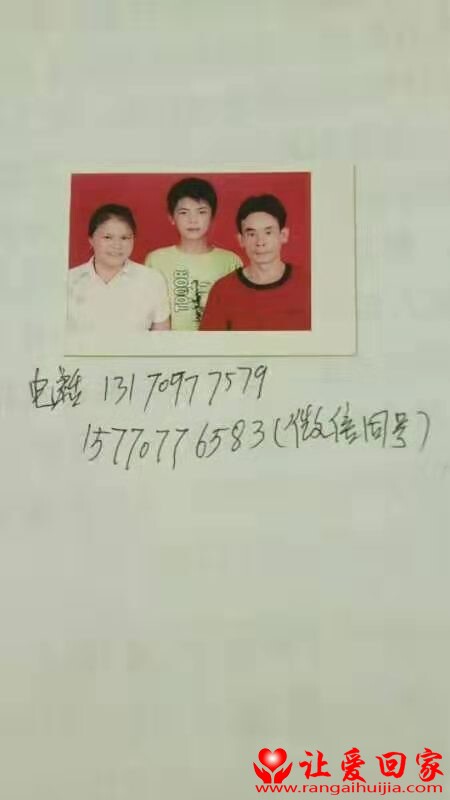 TOQOR
电话 13170977579
15770776583(微信同号)
让爱回家
www.rangaihuijia.com